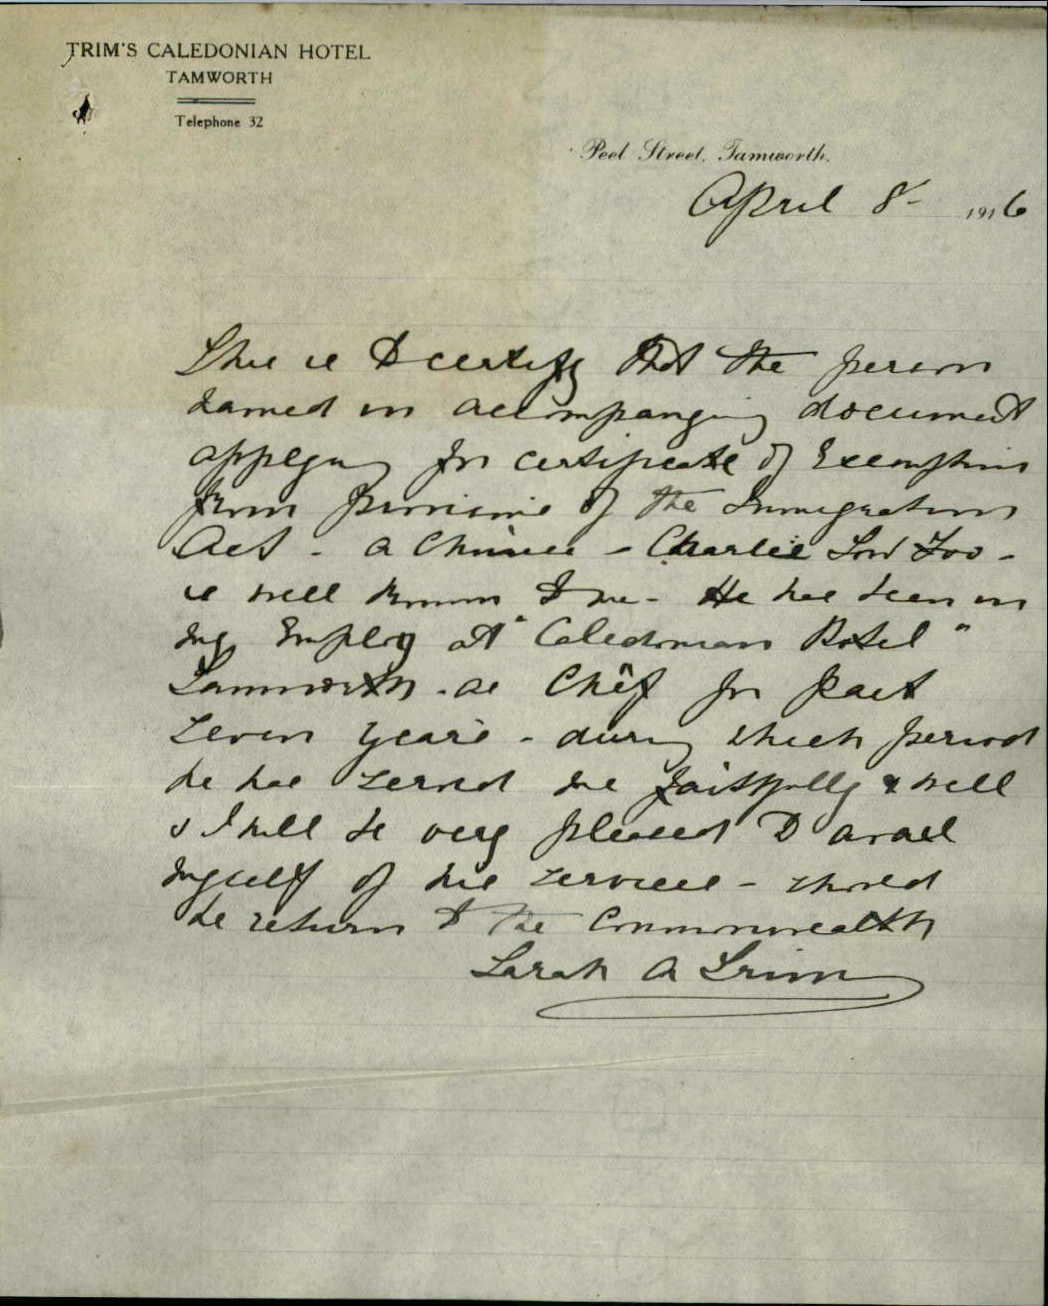 TRIM'S CALEDONIAN HOTEL
TAMWORTH
Telephone 32
Peel Street, Tamworth.
April 8 1916
This is to certify that the person
named in accompanying document
applying for certificate of Exemption
from provisions of the Immigration
Act - a Chinese - Charlie Low Foo -
is well known to me - He has been in
my Employ at "Caledonian Hotel"
Tamworth - as Chef for past
seven years - during which period
he has served me faithfully & well
& I will be very pleased to avail
myself of his services - should
he return to the Commonwealth
Sarah A Trim